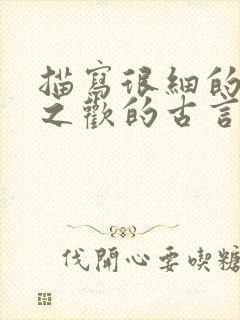 描寫很細的
之歡的古言
伐開心要喫糖